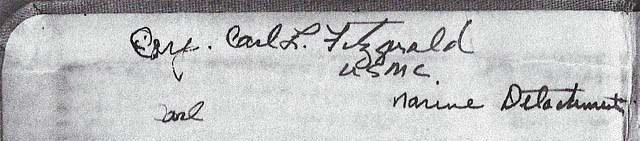 Corp. Carl L. Fitzgerald
USMC
Marine Detachment